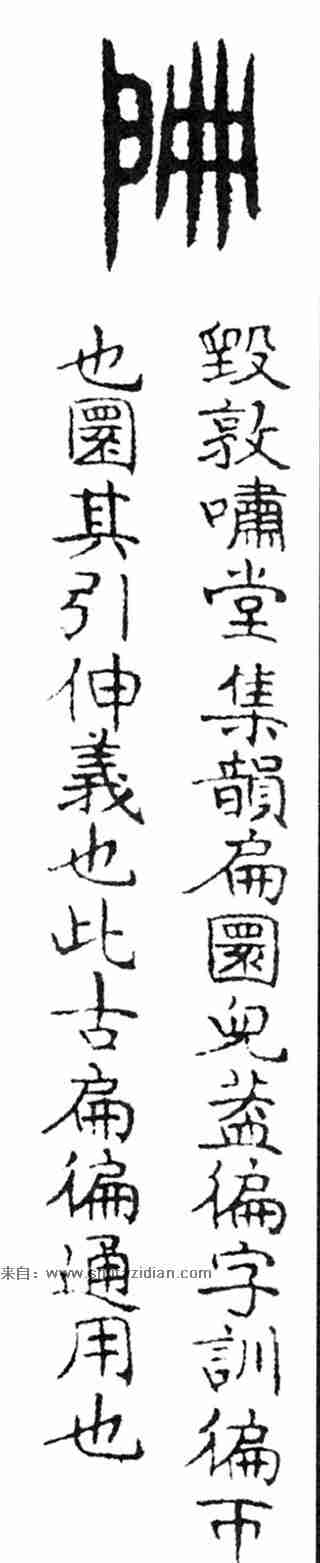 毀敦嘯堂集韻扁圜皃葢徧字訓徧帀
也圜其引伸義也此古扁徧通用也
来自：www.shufazidian.com